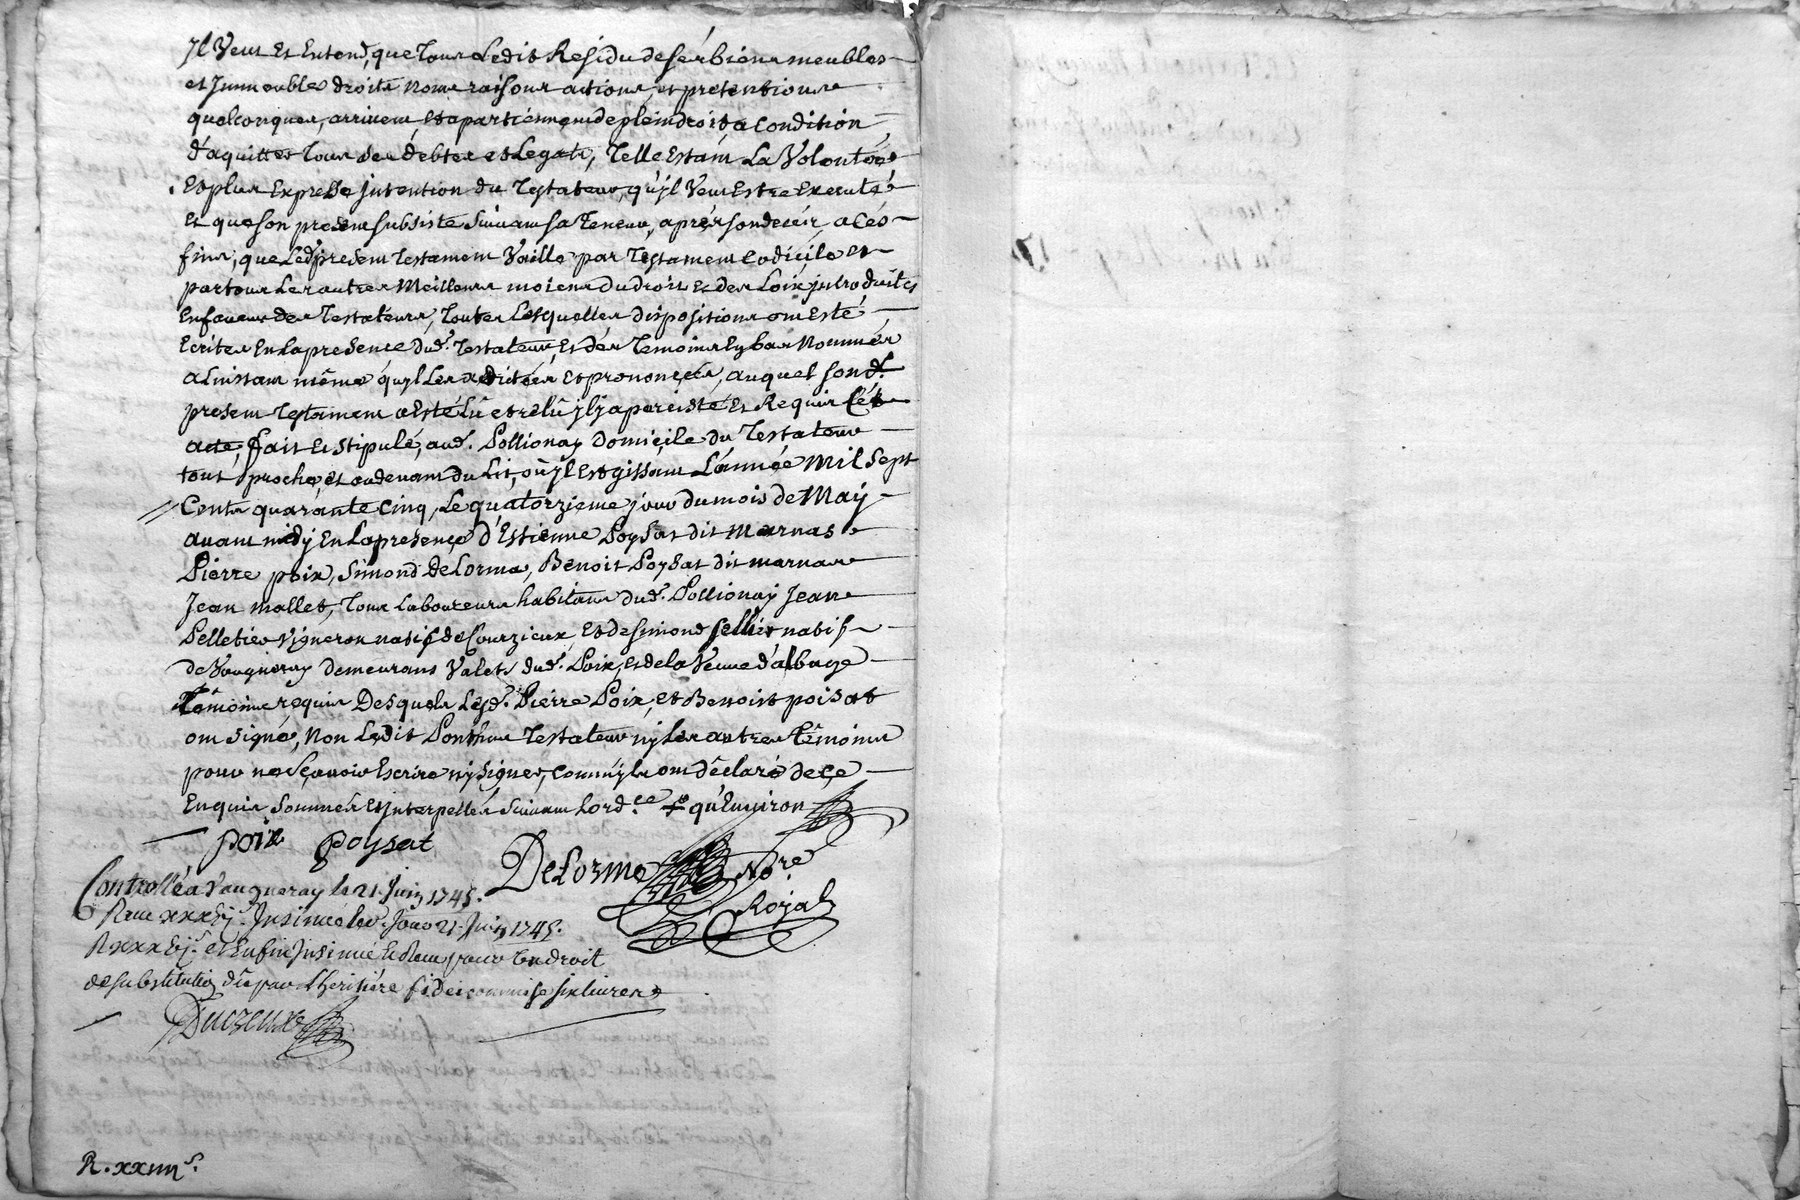 Jl Veut Et Entend, que Tout Ledit Residu de sés biens meubles
et Jmmeubles droits noms raisons actions, et pretentions
quelconques, arrivent et apartiénnent de plein droit a condition
d'aquitter Tous ses debtes et Legats, Telle Estant La Volonté
Et plus Expresse jntention du Testateur, qu'jl Veut Estre Executé
Et que son present subsiste suivant sa Teneur, aprés son decéz, a Cés
fins, que Led. present Testament Vaille par Testament codicile et
par tous Les autres Meilleurs moiens du droit et des Loix jntroduites
En faveur des Testateurs, Toutes Lésquelles dispositions ont Esté
Ecrites En La presence dud. Testateur, Et dés Temoins En bas Nommés
a L'instant même qu'jl Les a dictées Et prononcées, auquel sond.
present Testament a Esté Lû et relû jl j a percisté Et Requis Cét
acte, fait Et stipulé, aud. Pollionay Domicile du Testateur
tout proche, et audevant du Lit, où jl Est gissant L'année Mil Sept
Cents quarante Cinq, Le quatorzieme jour du mois de Maÿ
avant midÿ En La presence d'Estienne Poysat dit Marnas
Pierre poix, Simond DeLorme, Benoit Poysat dit marnas
Jean mallet, Tous Laboureurs habitans dud. Pollionay Jean
Pelletier vigneron natif de Courzieux, Et de simond sellier natif
de Vaugneray demeurans Valets dud. Poix, et de la Veuve d'albuge
Témoins requis Desquels Lesd. Pierre Poix, et Benoist poisat
ont signé, Non Ledit Ponthus Testateur nj Les autres témoins
pour ne sçavoir Escrire nj signer, comm'jls ont déclaré de çe
Enquis Sommés Et jnterpellés Suivant L'ord.ce qu'Environ
poix Poysat
DeLorme No.re
Royal
Controllé a Vaugneray le 21 Juin 1745.
Reçu xxxbj s. Jnsinué led. Jour 21 Juin 1745.
R xxxbj s. et Enfin Jnsinué Et Reçu pour Le droit
de substitution dû par L'heritiére fideicommise six livres
Ducreux
R. xxiiii s.